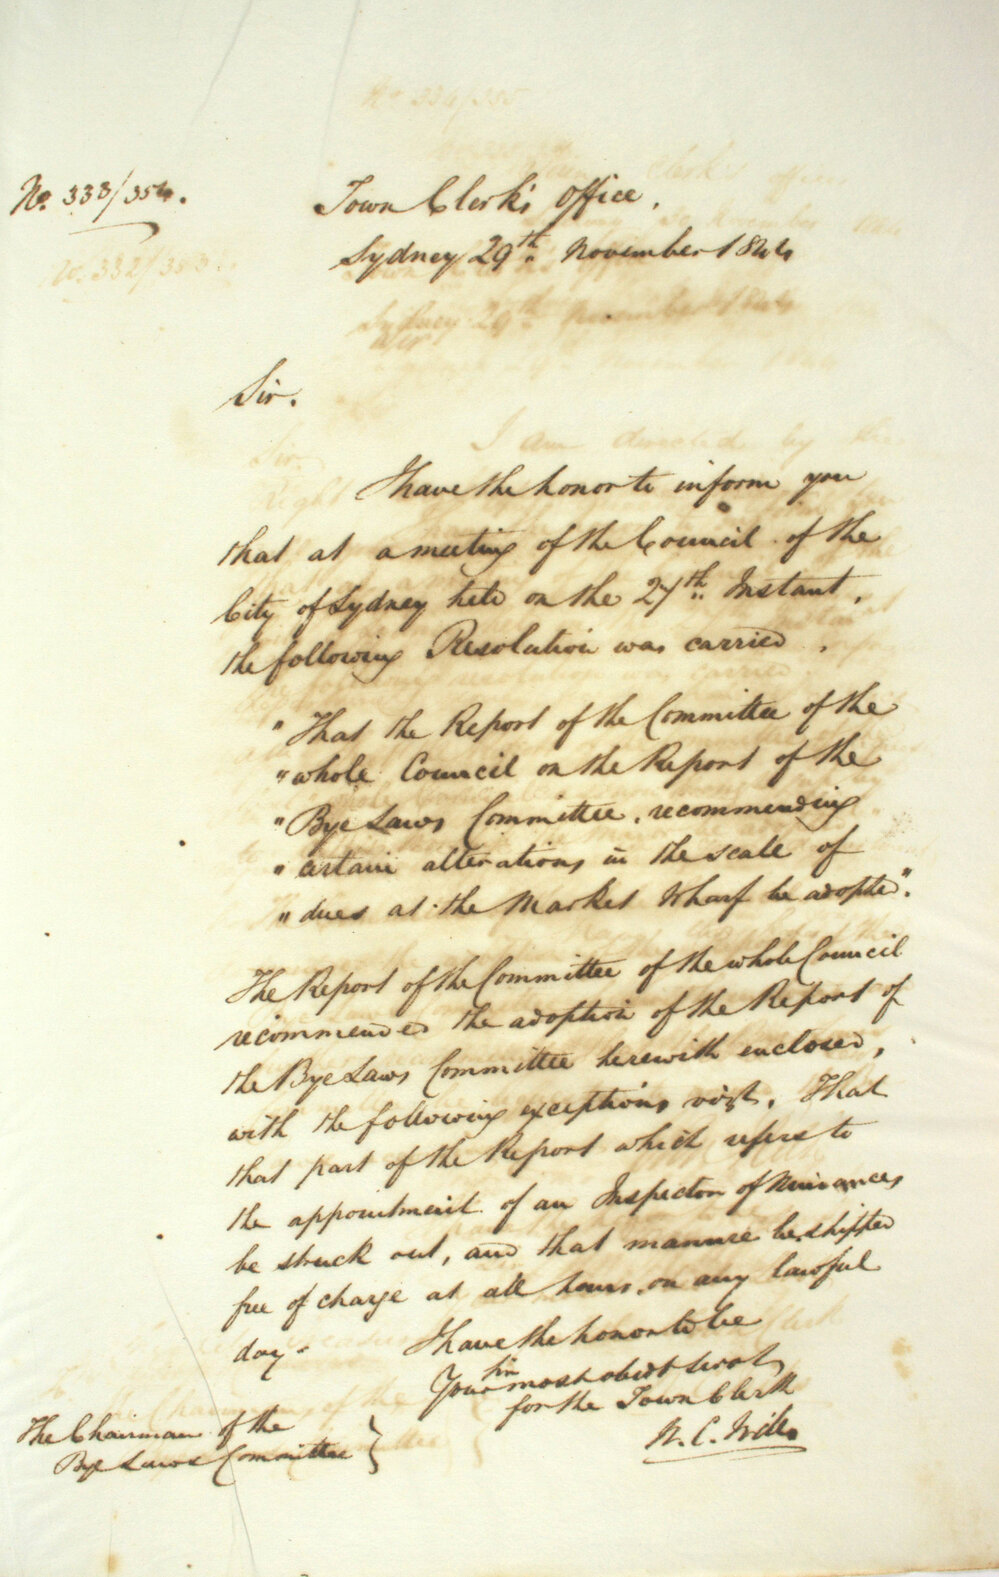 No. 333/354.
Town Clerk's Office,
Sydney 29th November 1844
Sir.
I have the honor to inform you
that at a meeting of the Council of the
City of Sydney held on the 27th Instant,
the following Resolution was carried,
"That the Report of the Committee of the
"whole Council on the Report of the
"Bye Laws Committee, recommending
"certain alterations in the scale of
"dues at the Market Wharf be adopted".
The Report of the Committee of the whole Council
recommended the adoption of the Report of
the Bye Laws Committee herewith enclosed,
with the following exceptions vizt. That
that part of the Report which refers to
the appointment of an Inspector of Nuisances
be struck out, and that manure be shipped
free of charge at all hours on any lawful
day.
I have the honor to be
Sir
Your most obedt servt,
for the Town Clerk
W. C. Wills
The Chairman of the
Bye Laws Committee }